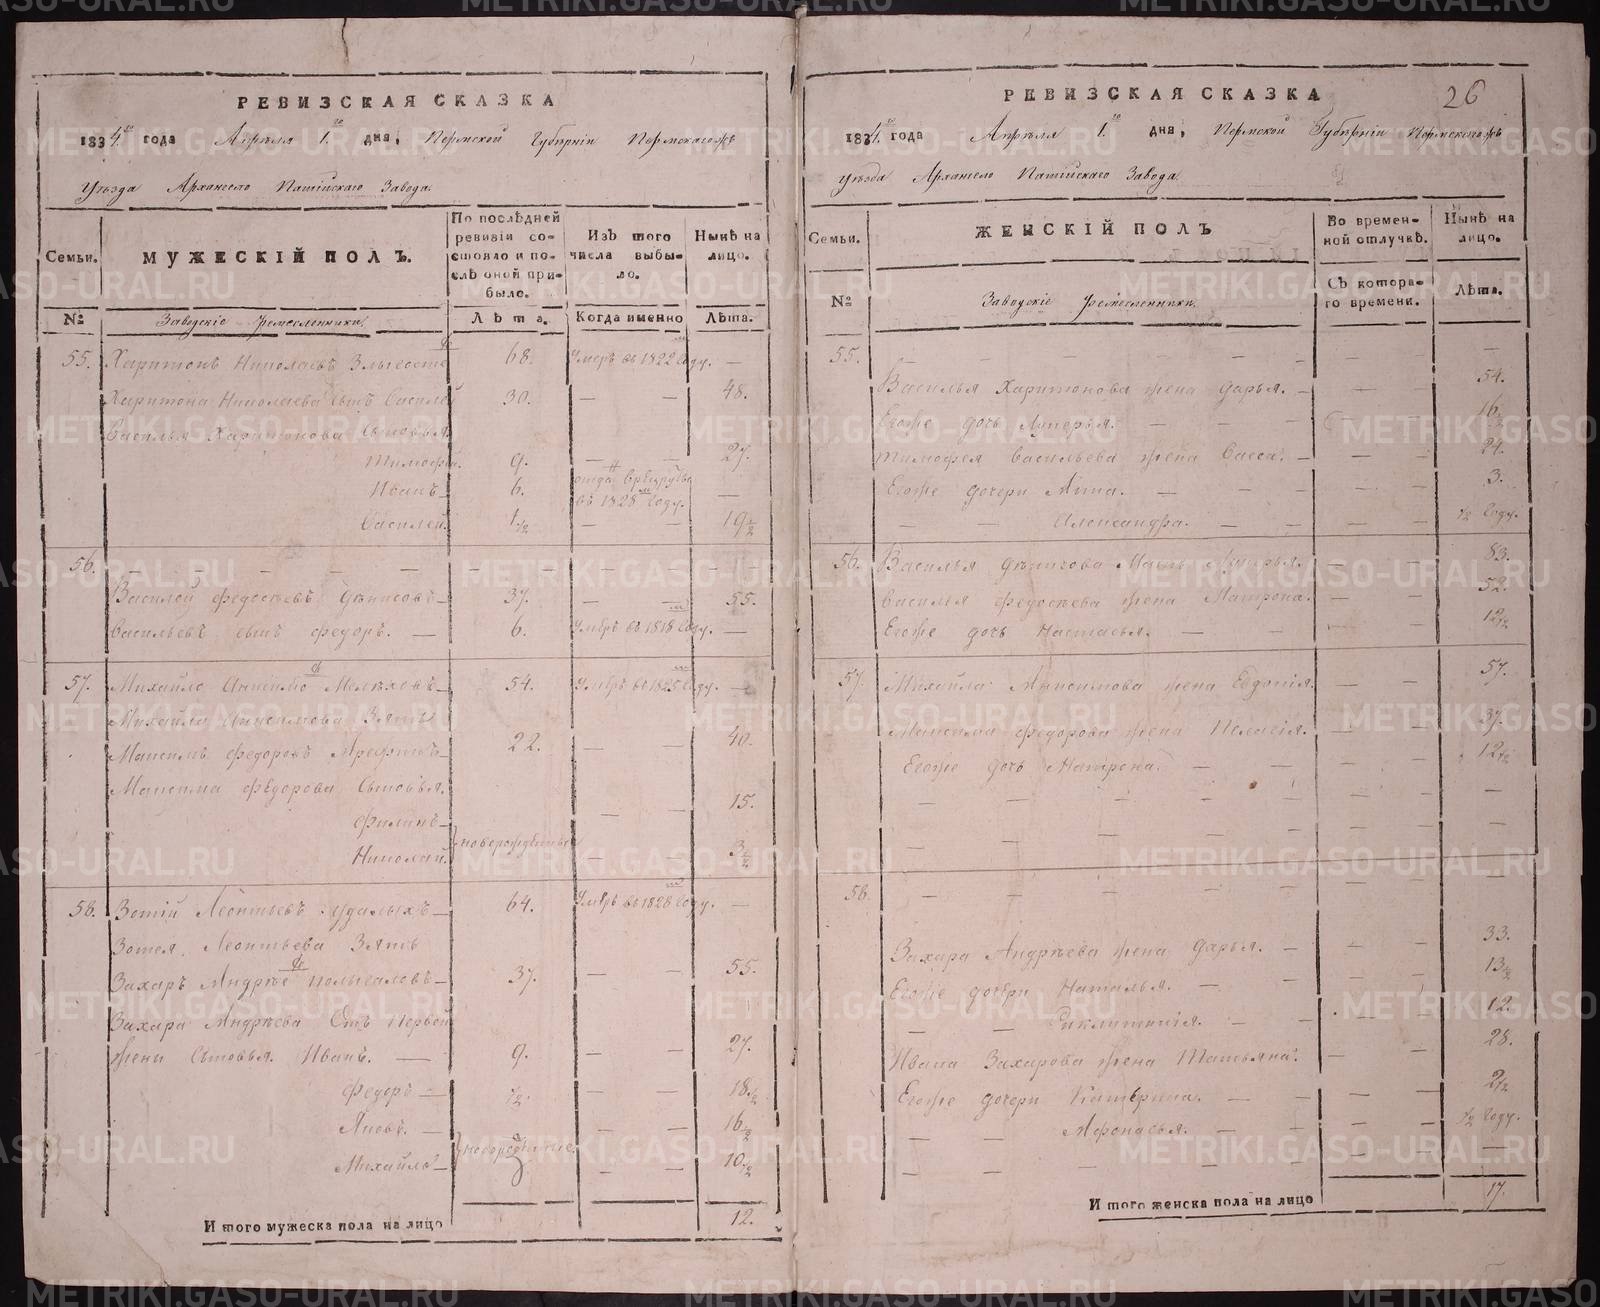 РЕВИЗСКАЯ СКАЗКА
1834 года Апреля 1 дня, Пермской Губерніи Пермскагожъ
Уѣзда Архангело Пашійскаго Завода.
Семьи.
МУЖЕСКІЙ ПОЛЪ.
По послѣдней ревизіи состояло и послѣ оной прибыло.
Изъ того числа выбыло.
Нынѣ на лицо.
№
Заводскіе Ремесленники.
Лѣта.
Когда именно
Лѣта.
55. Харитонъ Николаевъ 68. Умеръ въ 1822 Году. —
Харитона Николаева сынъ Василей 30. — — 48.
Василья Харитонова Сыновья.
Тимофей. 9. — — 27.
Иванъ 6. отданъ въ рекруты въ 1828 Году. —
Василей. 1/2 — — 19 1/2
56. — — — — — — —
Василей Федосѣевъ Денисовъ 37. — — 55.
Васильевъ сынъ Федоръ. — 6. Умеръ въ 1818 Году. —
57. Михайло 54. Умеръ въ 1825 Году. —
Михайла Анисимова Зять
Максимъ Федоровъ 22. — — 40.
Максима Федорова Сыновья.
Филипъ — — 15.
Николай. новорожденные — — 3 1/2
58. Зотій Леонтьевъ Удалыхъ 64. Умеръ въ 1828 Году. —
Зотея Леонтьева Зять
Захаръ Андрѣевъ 37. — — 55.
Захара Андрѣева Отъ Первой
жены Сыновья. Иванъ. — 9. — — 27.
Федоръ — 1/2. — — 18 1/2
Яковъ. — — — 16 1/2
Михайло новорожденные — — 10 1/2
Итого мужеска пола на лицо 12.
РЕВИЗСКАЯ СКАЗКА 26
1834 года Апреля 1 дня, Пермской Губерніи Пермскагожъ
Уѣзда Архангело Пашійскаго Завода.
Семьи.
ЖЕНСКІЙ ПОЛЪ
Во временной отлучкѣ.
Нынѣ на лицо.
№
Заводскіе Ремесленники.
Съ котораго времени.
Лѣта.
55. — — — — — — —
Василья Харитонова жена Дарья. — — — 54.
Егоже дочь Лукерья. — — — 16 1/2
Тимофея Васильева жена — — — 24.
Егоже дочери Анна. — — — — 3.
— — Александра. — — — 1/2 Году.
56. Василья Денисова Мать — — 83.
Василья Федосѣева жена Матрона. — — 52.
Егоже дочь Настасья. — — — 12 1/2
57. Михайла Анисимова жена Евдокія. — — 57.
Максима Федорова жена Пелагія. — — 37.
Егоже дочь Матрона. — — — — 12 1/2
— — — — — — —
— — — — — — —
58. — — — — — — —
Захара Андрѣева жена Дарья. — — — 33.
Егоже дочери Наталья. — — — 13 1/2
— — — — — 12.
Ивана Захарова жена Татьяна. — — 28.
Егоже дочери Катерина. — — — — 2 1/2
— — Афонасья. — — — 1/2 Году.
— — — — — — —
Итого женска пола на лицо 17.
METRIKI.GASO-URAL.RU